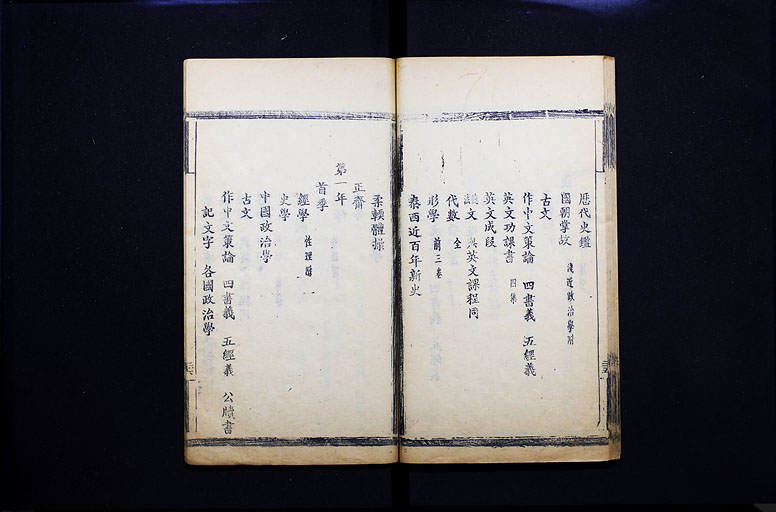 歷代史鑑
國朝掌故 淺近政治學附
古文
作中文策論 四書義 五經義
英文功課書 四集
英文成段
文 與英文課程同
代數 全
形學 前三卷
泰西近百年新史
柔輭體操
正齋
第一年
首季
經學 性理附
史學
中國政治學
古文
作中文策論 四書義 五經義 公牘書
記文字 各國政治學